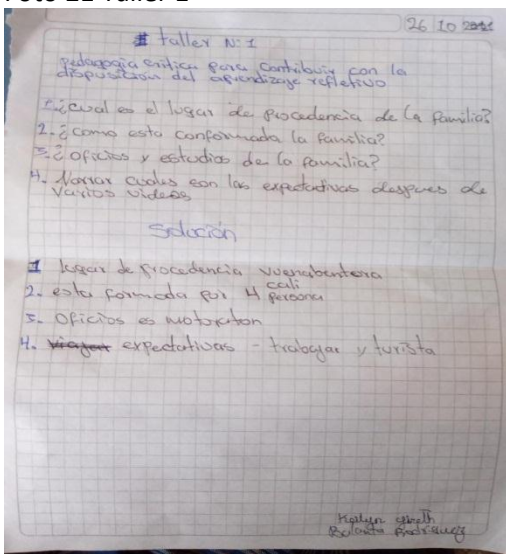 Foto 11 Taller 1
26 10 2021
taller N: 1
pedagogia critica para contribuir con la
disposicion del aprendizaje refletivo
1. ¿cual es el lugar de procedencia de la familia?
2. ¿como esta conformada la familia?
3. ¿oficios y estudios de la familia?
4. Narrar cuales son las expectativas despues de
varios videos
Solución
1 lugar de procedencia vuenabentera
cali
2. esta formada por 4 persona
3. oficios es motoraton
4. expectativas - trabajar y turista
Rodriguez